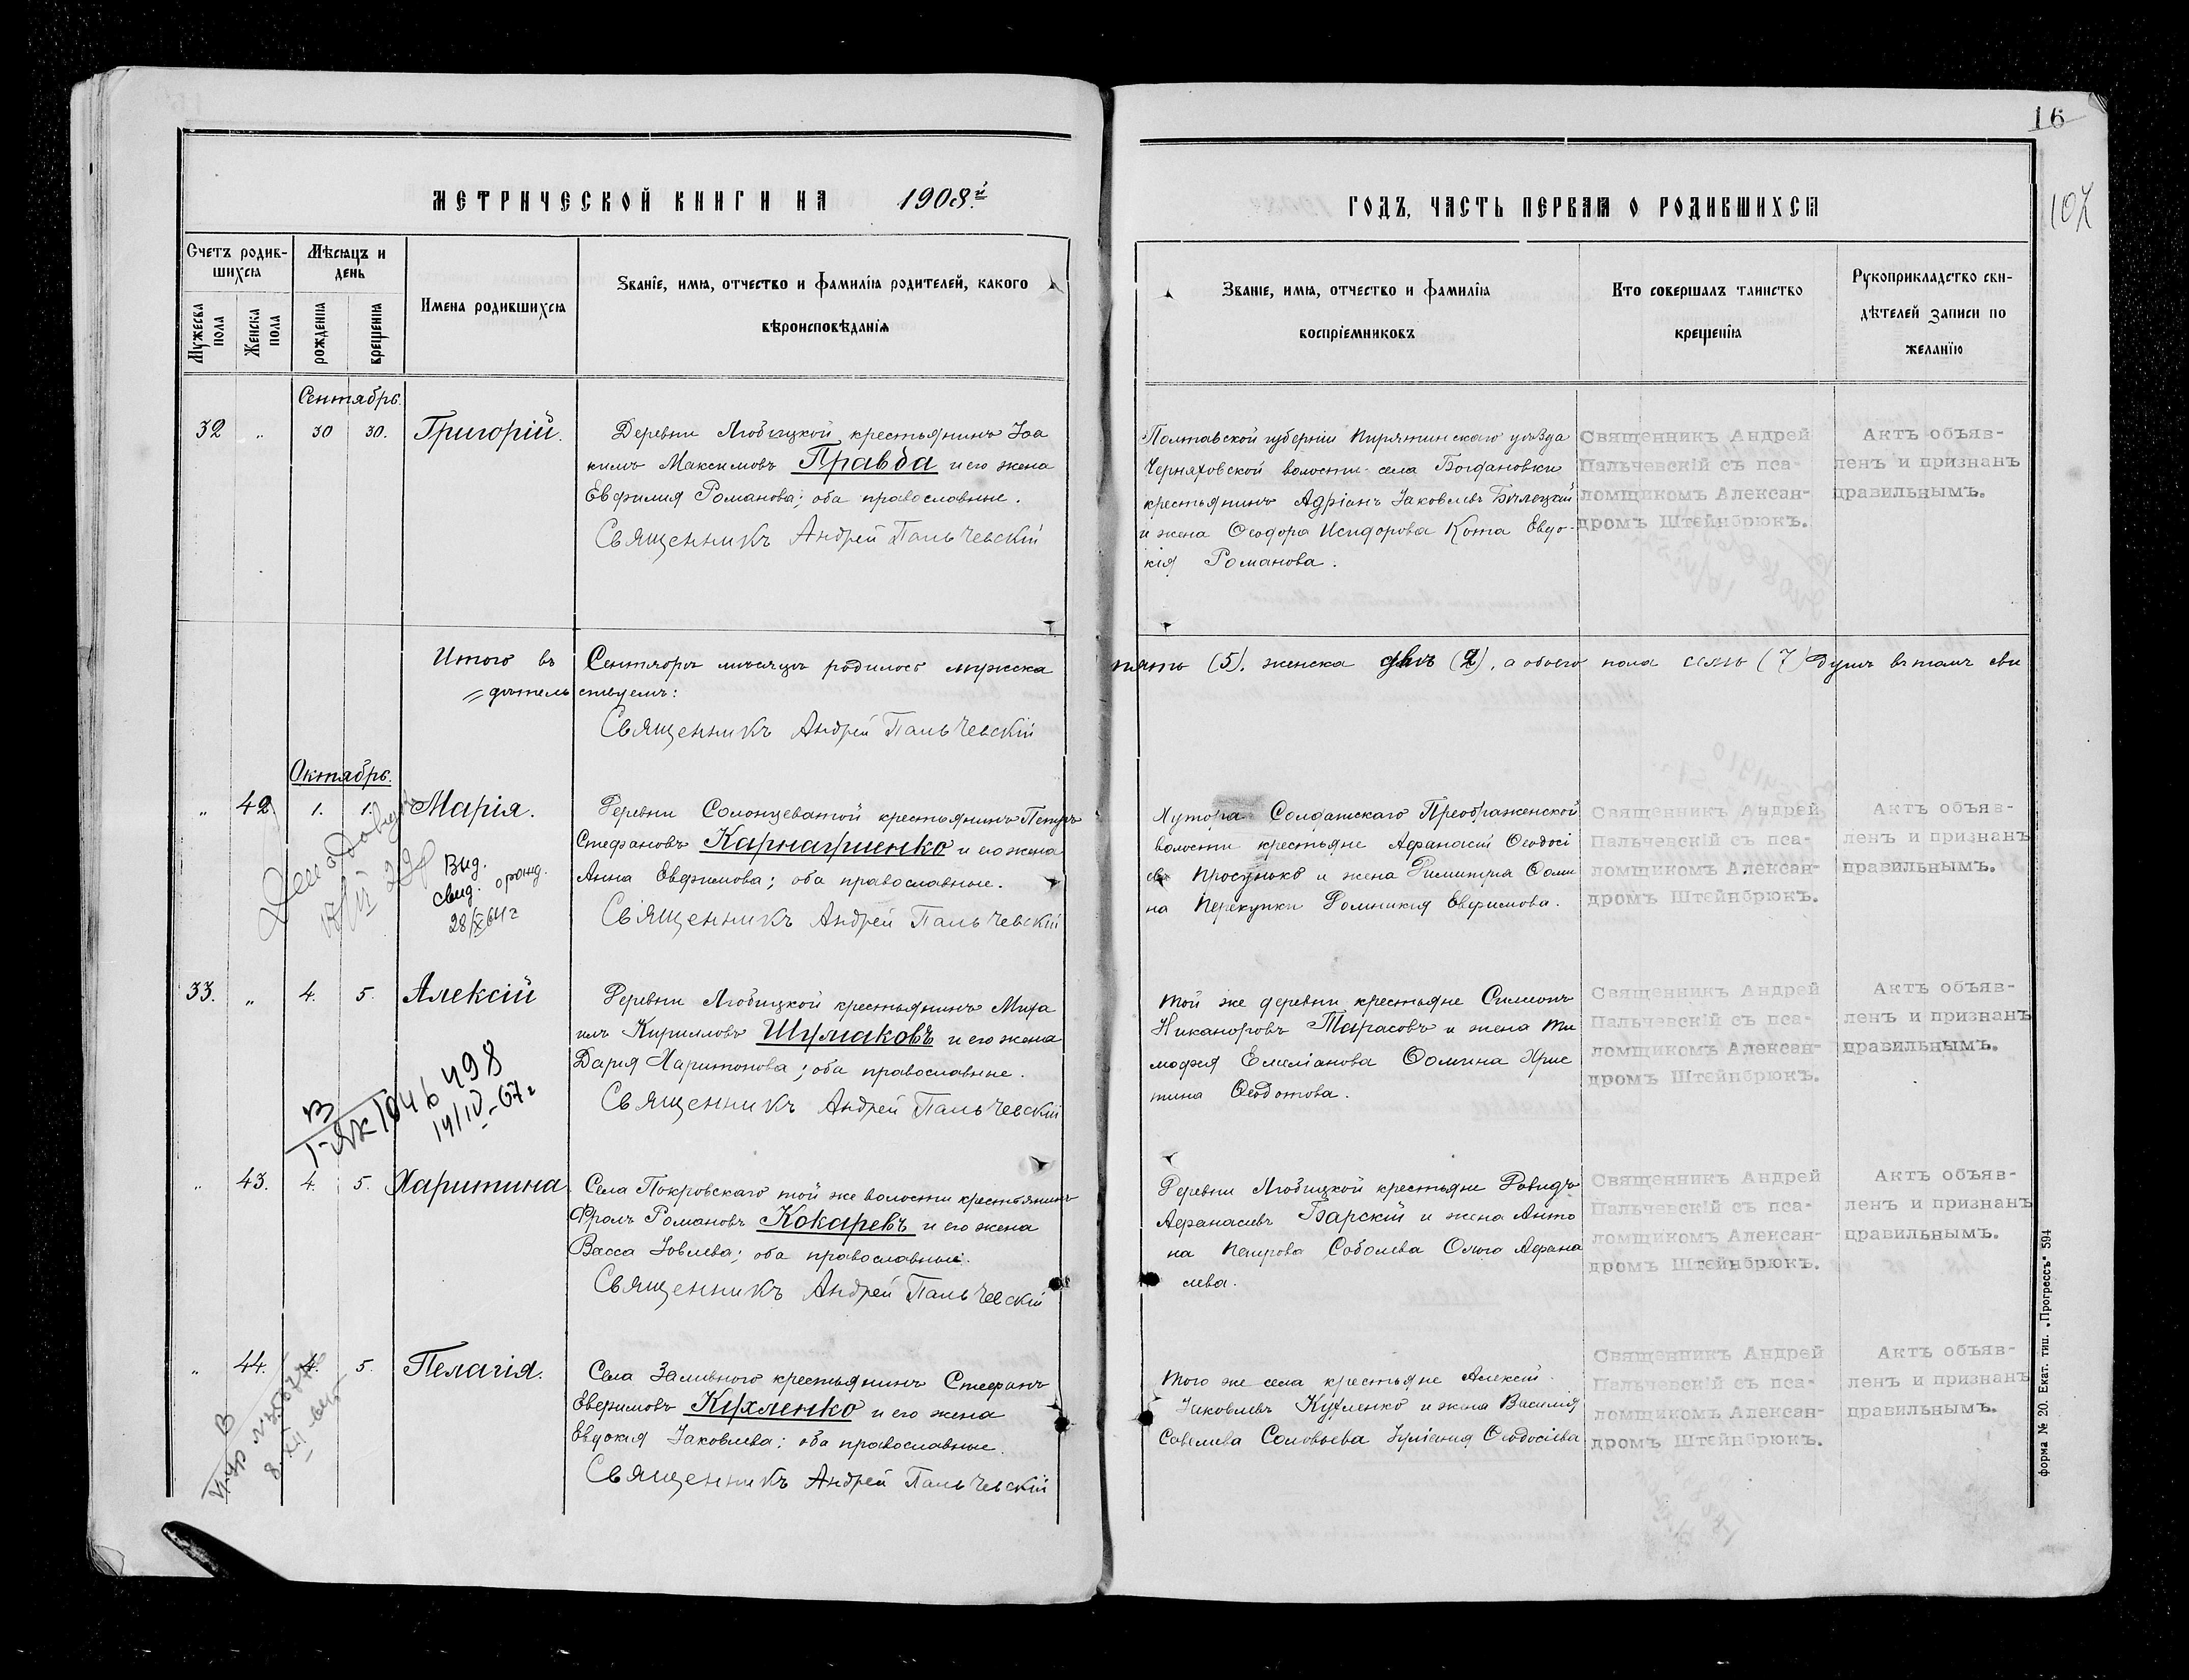 16
107
МЕТРИЧЕСКОЙ КНИГИ НА 1908.й
ГОДЪ, ЧАСТЬ ПЕРВАЯ О РОДИВШИХСЯ
Счетъ родив-
шихся
Мужеска пола
Женска пола
Мѣсяцъ и
день
рожденія
крещенія
Имена родившихся
Званіе, имя, отчество и фамилія родителей, какого
вѣроисповѣданія
Званіе, имя, отчество и фамилія
воспріемниковъ
Кто совершалъ таинство
крещенія
Рукоприкладство сви-
дѣтелей записи по
желанію
Сентябрь.
32 „ 30 30. Григорій.
Деревни Любицкой крестьянинъ Іоа
кимъ Максимовъ Правда и его жена
Евфимія Романова; оба православные.
Священникъ Андрей Пальчевскій
Полтавской губерніи Пирятинскаго уѣзда
Черняховской волости села Богдановки
крестьянинъ Адріанъ Іаковлевъ Бѣлоцкій
и жена Ѳеодора Исидорова Кота Евдо-
кія Романова.
Священникъ Андрей
Пальчевскій съ пса-
ломщикомъ Алексан-
дромъ Штейнбрюкъ.
Актъ объяв-
ленъ и признанъ
правильнымъ.
Итого въ Сентябрѣ мѣсяцѣ родилось мужска
пять (5), женска двѣ (2), а обоего пола семь (7) душъ въ томъ сви
= дѣтельствуемъ:
Священникъ Андрей Пальчевскій
Октябрь.
„ 42. 1. 1. Марія.
Вид.
свид. о рожд.
28/X 64 г
Деревни Солонцеватой крестьянинъ Петръ
Стефановъ Карнаушенко и его жена
Анна Евфимова; оба православные.
Священникъ Андрей Пальчевскій
Хутора Солдатскаго Преображенской
волости крестьяне Афанасій Ѳеодосі
евъ Просунько и жена Димитрія Ѳоми
на Перекупки Домникія Евфимова.
Священникъ Андрей
Пальчевскій съ пса-
ломщикомъ Алексан-
дромъ Штейнбрюкъ.
Актъ объяв-
ленъ и признанъ
правильнымъ.
33. „ 4. 5. Алексій
498
14/IV-67 г
Деревни Любицкой крестьянинъ Миха
илъ Кирилловъ Шумаковъ и его жена
Дарія Харитонова; оба православные.
Священникъ Андрей Пальчевскій
Той же деревни крестьяне Симеонъ
Никаноровъ Тарасовъ и жена Ти
мофея Емеліанова Ѳомина Хрис
тина Ѳеодотова.
Священникъ Андрей
Пальчевскій съ пса-
ломщикомъ Алексан-
дромъ Штейнбрюкъ.
Актъ объяв-
ленъ и признанъ
правильнымъ.
„ 43. 4. 5. Харитина
Села Покровскаго той же волости крестьянинъ
Фролъ Романовъ Кокаревъ и его жена
Васса Іовлева; оба православные.
Священникъ Андрей Пальчевскій
Деревни Любицкой крестьяне Давидъ
Афанасьевъ Барскій и жена Анто
на Петрова Соболева Ольга Афана
сьева.
Священникъ Андрей
Пальчевскій съ пса-
ломщикомъ Алексан-
дромъ Штейнбрюкъ.
Актъ объяв-
ленъ и признанъ
правильнымъ.
„ 44. 4. 5. Пелагія.
Села Заливного крестьянинъ Стефанъ
Евфимовъ Кухленко и его жена
Евдокія Іаковлева; оба православные.
Священникъ Андрей Пальчевскій
Того же села крестьяне Алексій
Іаковлевъ Кухленко и жена Василія
Савелиева Соловьева Іуліанія Ѳеодосіева
Священникъ Андрей
Пальчевскій съ пса-
ломщикомъ Алексан-
дромъ Штейнбрюкъ.
Актъ объяв-
ленъ и признанъ
правильнымъ.
форма № 20. Екат. тип. „Прогрессъ“ 594